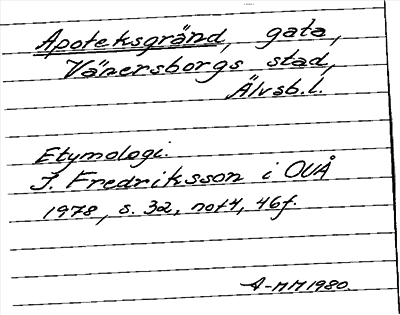 Apoteksgränd, gata,
Vänersborgs stad,
Älvsb. l.
Etymologi.
I. Fredriksson i OUÅ
1978, s. 32, not 4, 46f.
A-MM 1980.